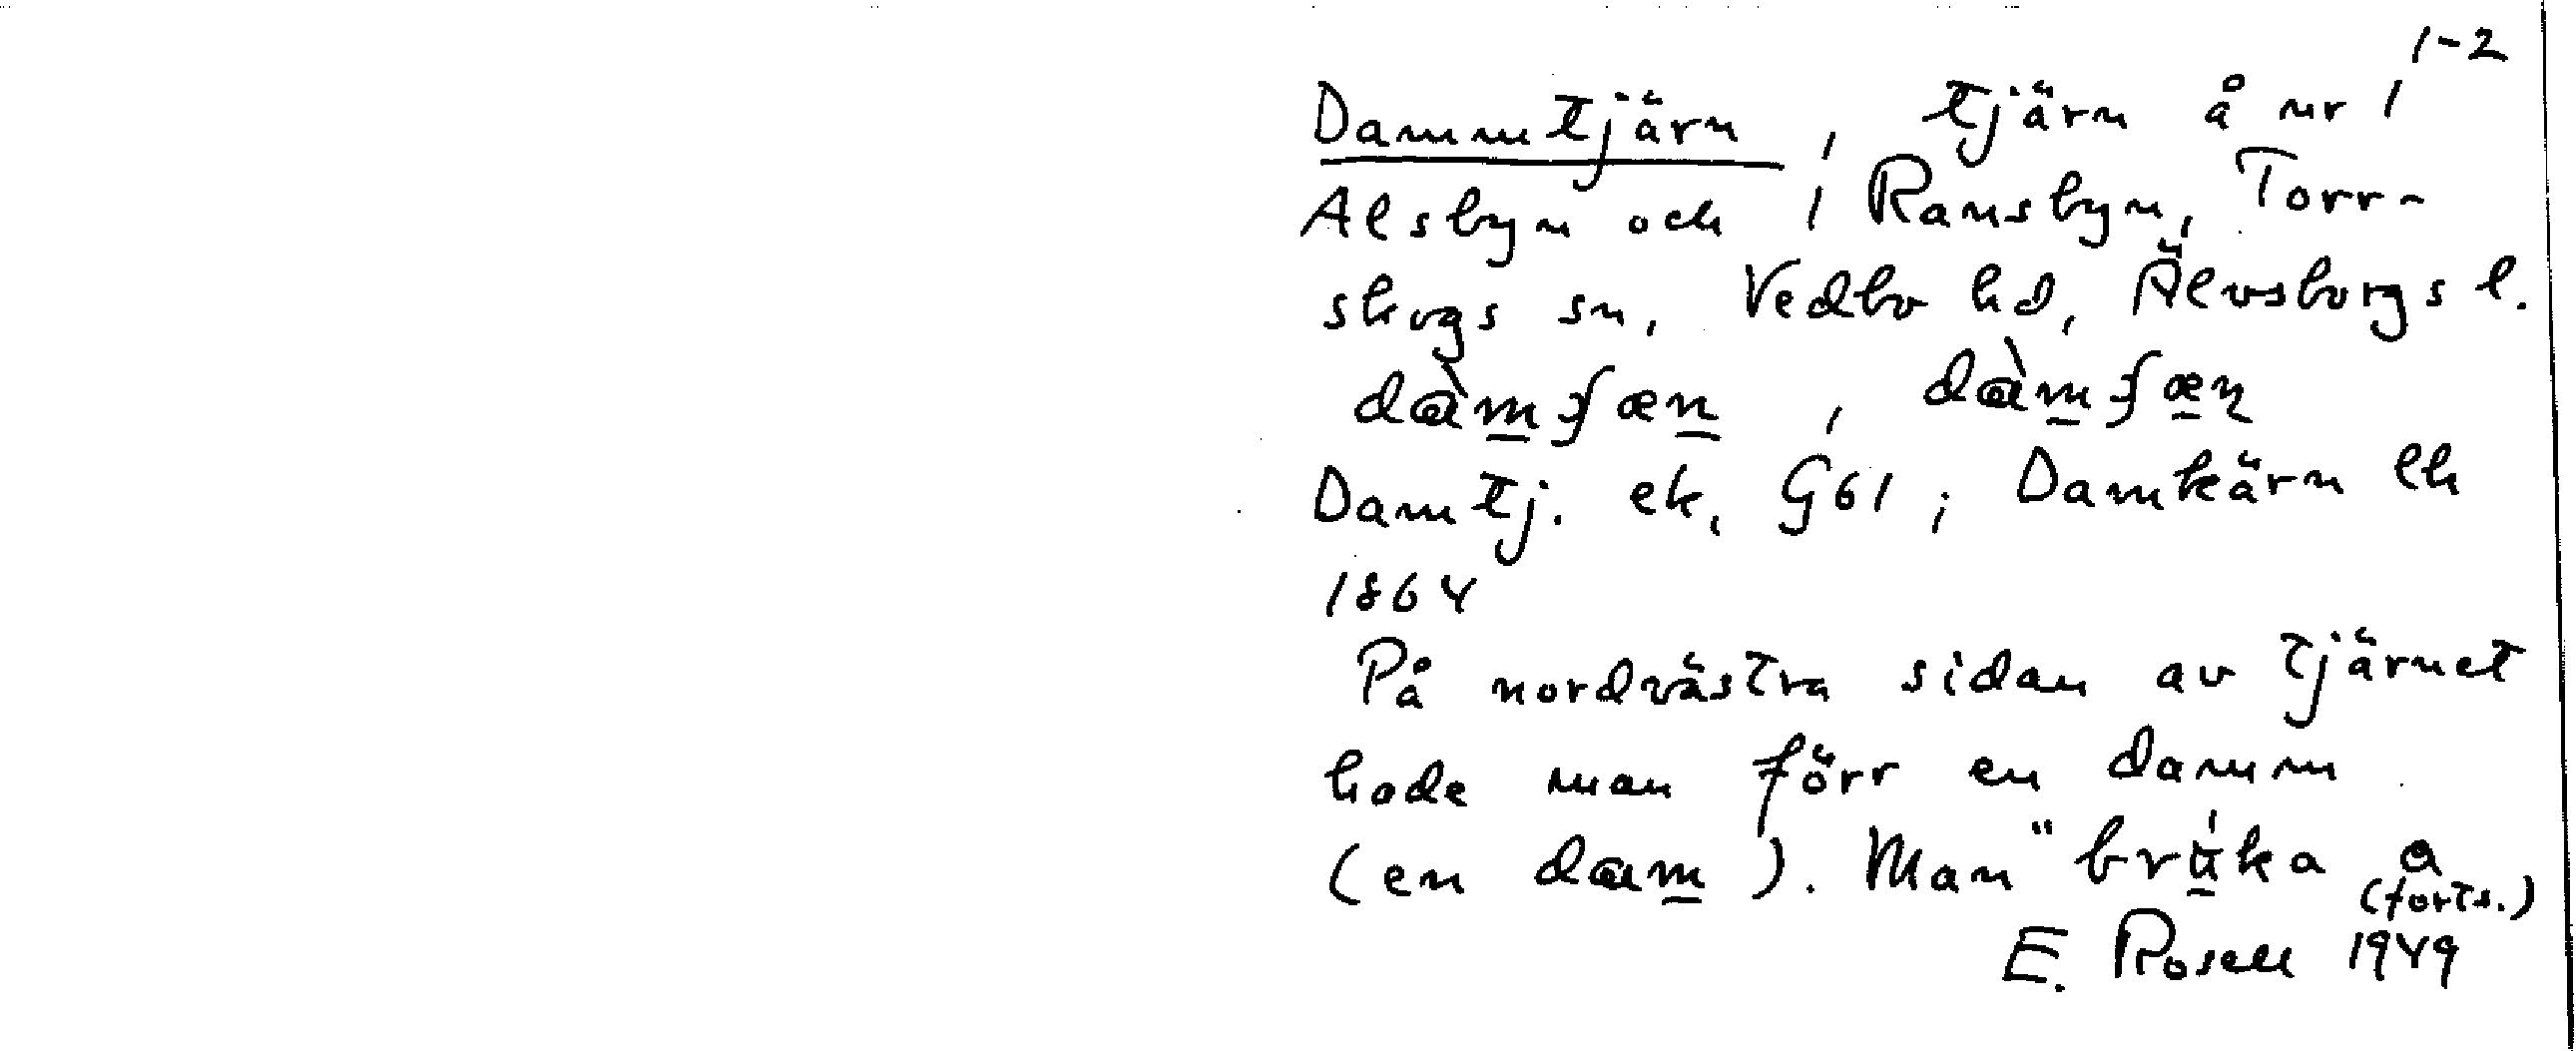 1-2
Dammtjärn, tjärn å nr 1
Alsbyn och 1 Ransbyn, Torr-
skogs sn, Vedbo hd, Älvsborgs l.
Damtj. ek. G61; Damkärn lh
1864
På nordvästra sidan av tjärnet
hade man förr en damm
(en dam). Man "bruka a
(forts.)
E. Rosell 1949